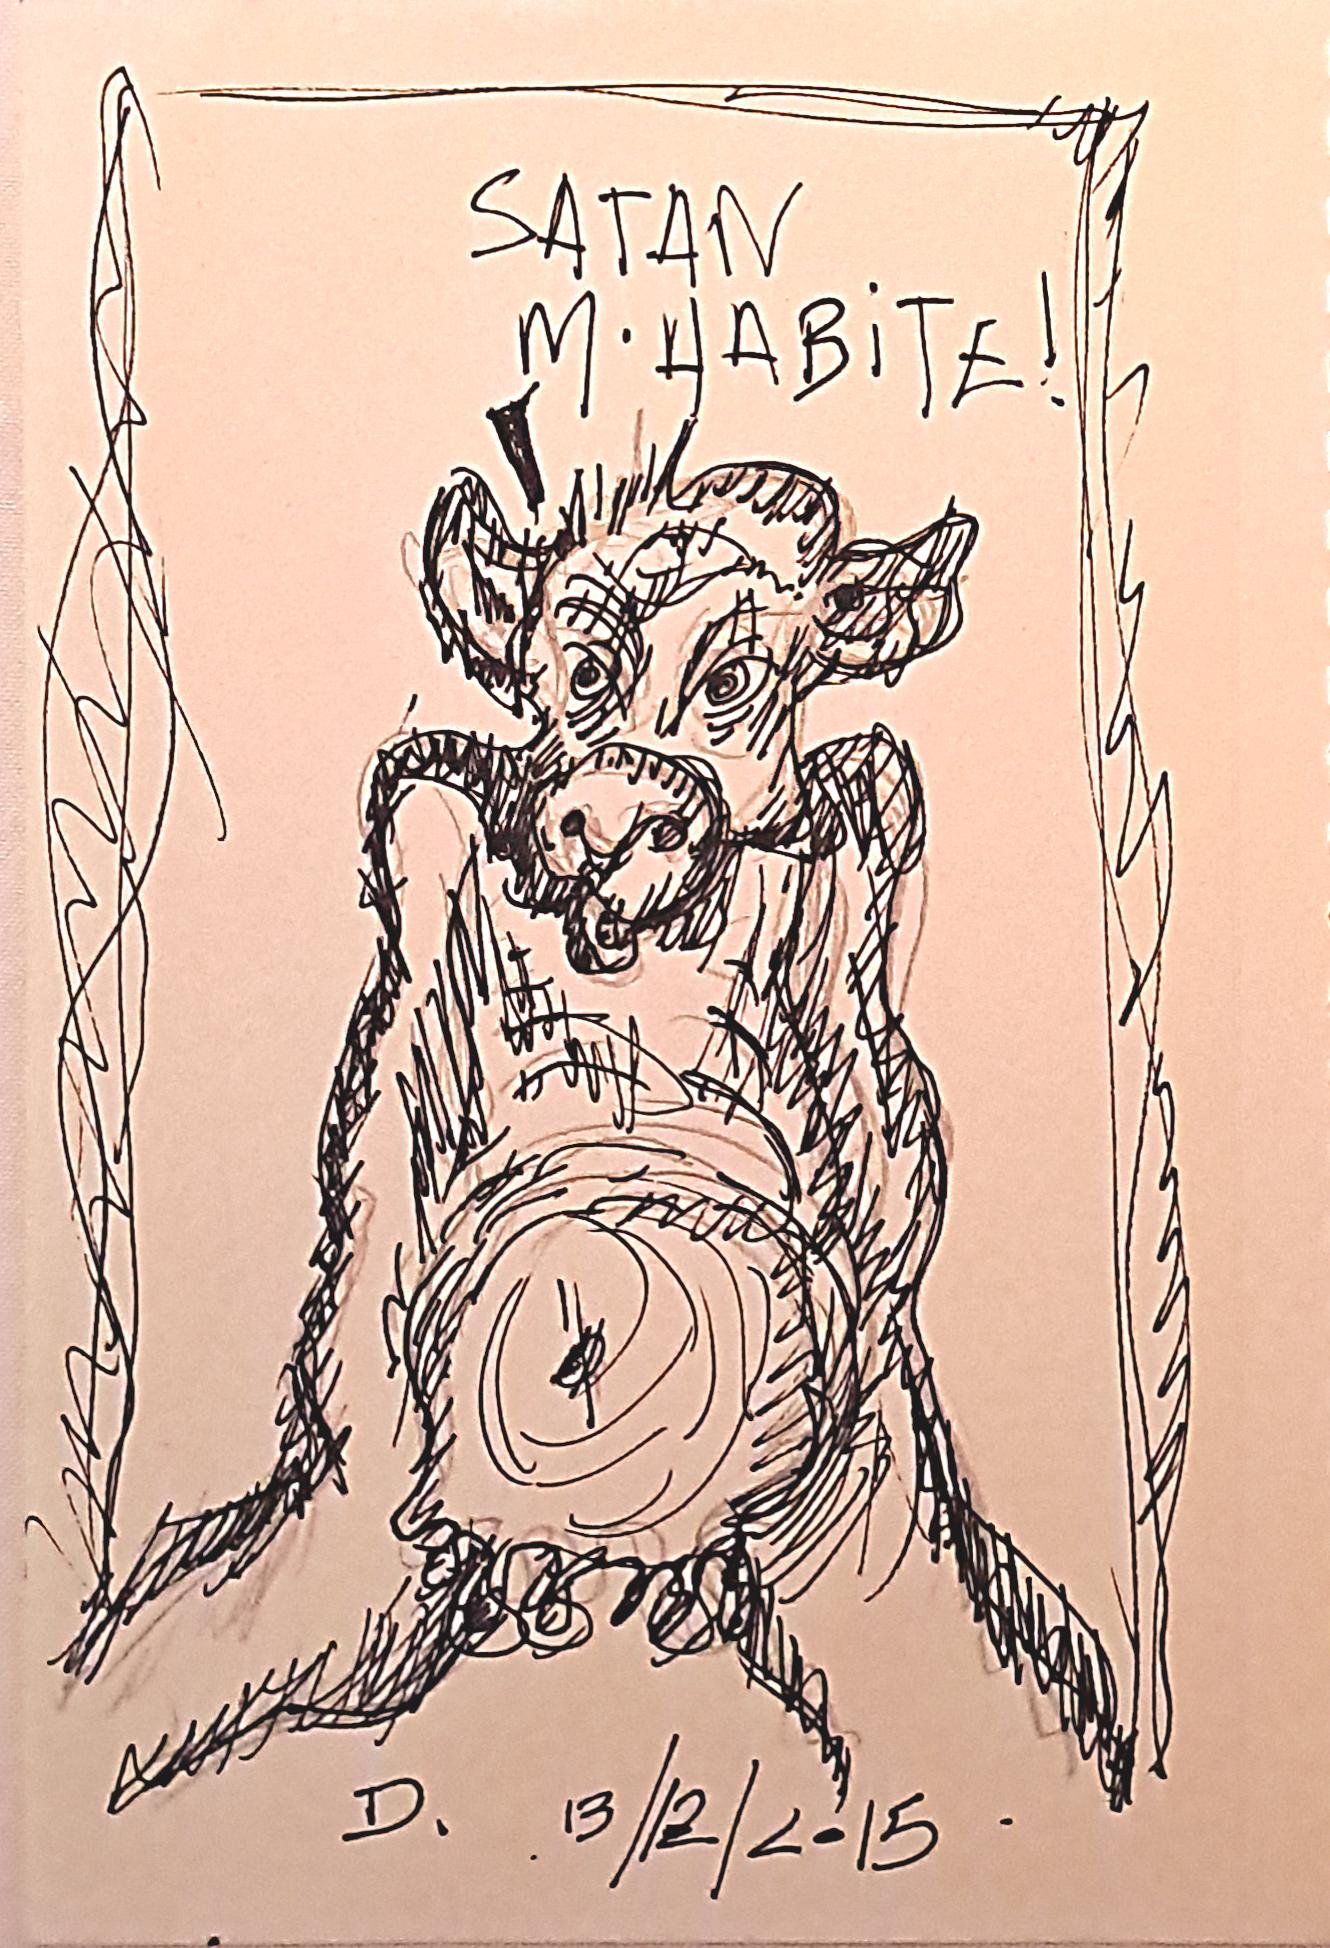 SATAN
M'HABITE!
D. 13/12/2015